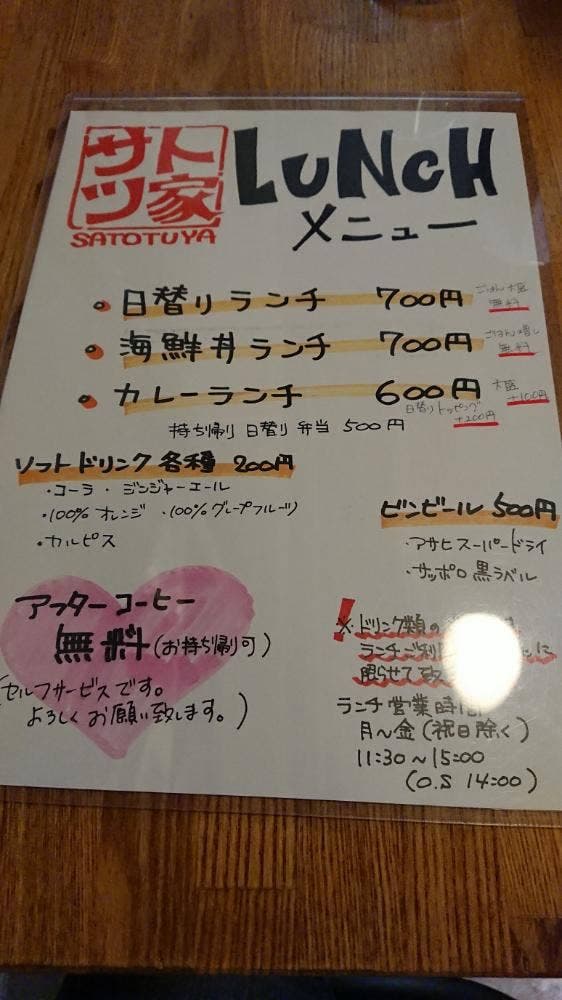 サトツ家
SATOTUYA
LUNCH
メニュー
日替りランチ 700円 ごはん大盛 無料
海鮮丼ランチ 700円 ごはん増し 無料
カレーランチ 600円 大盛 +100円
日替りトッピング +200円
持ち帰り 日替り弁当 500円
ソフトドリンク各種 200円
・コーラ ・ジンジャーエール
・100% オレンジ ・100% グレープフルーツ
・カルピス
ビンビール 500円
・アサヒスーパードライ
・サッポロ黒ラベル
アフターコーヒー
無料 (お持ち帰り可)
(セルフサービスです。
よろしくお願い致します。)
! ※ドリンク類の
ランチご利 に
限らせて致
ランチ営業時間
月〜金(祝日除く)
11:30〜15:00
(O.S 14:00)